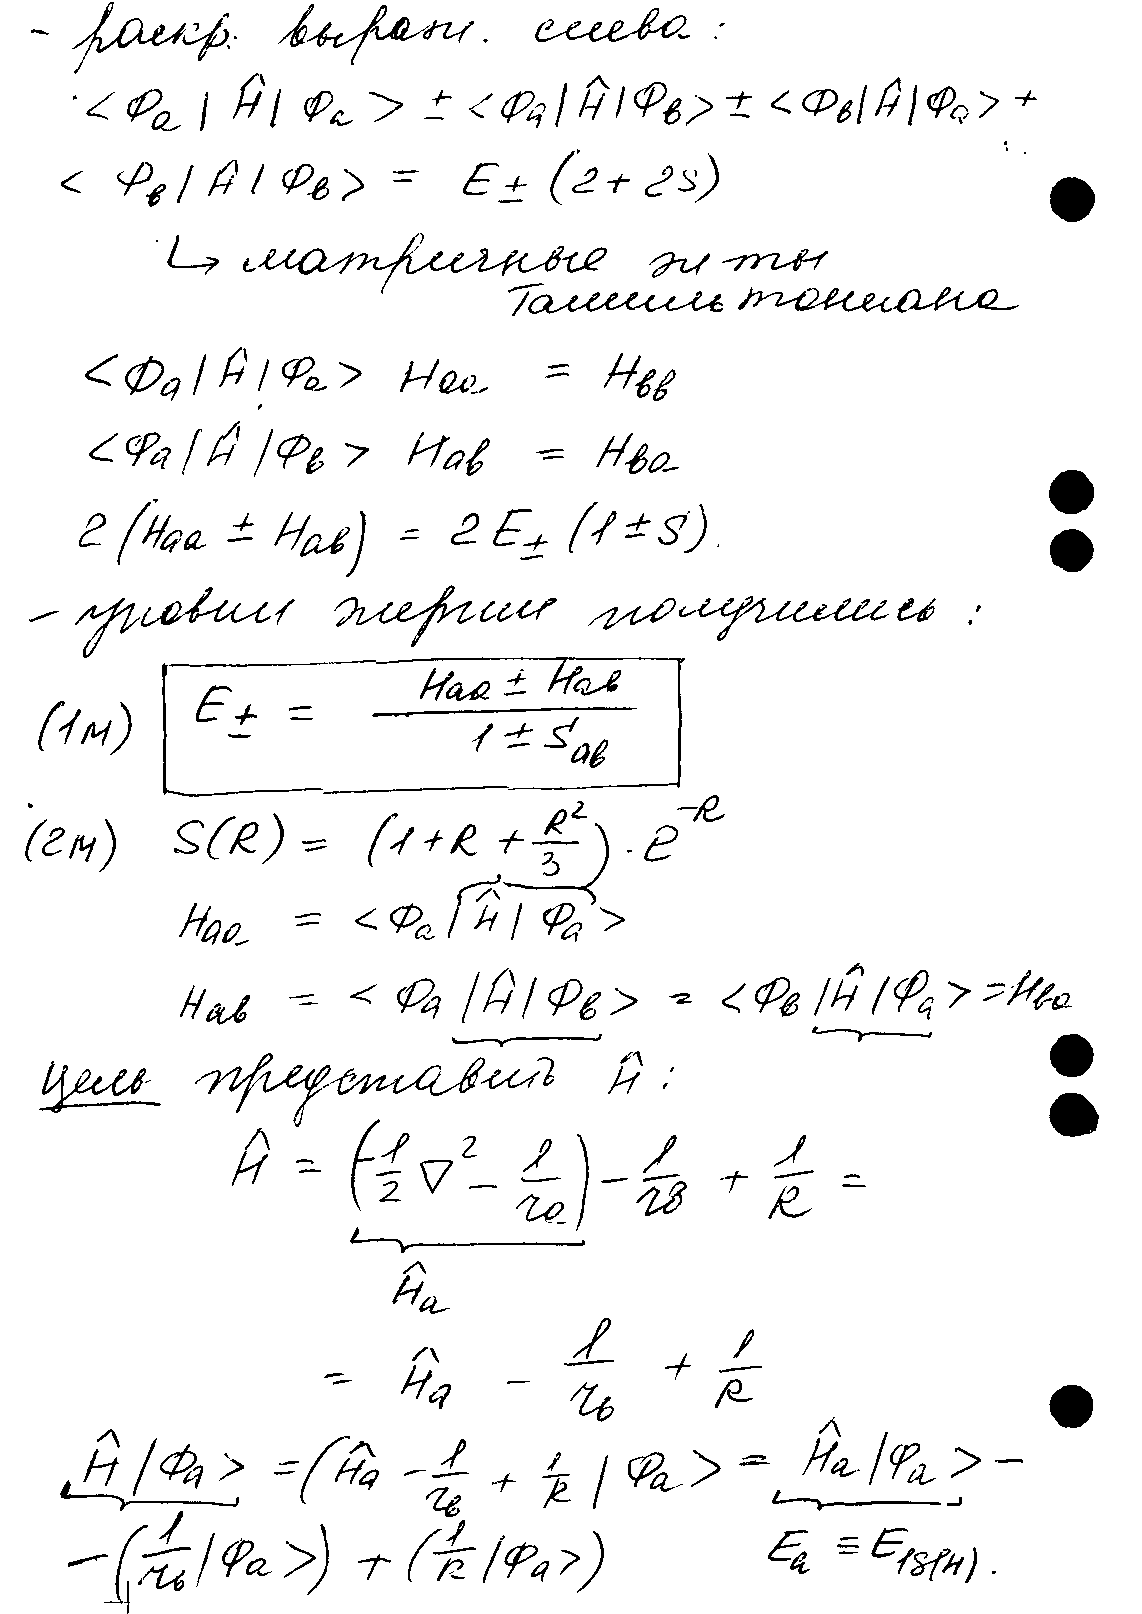 - раскр. выраж. слева:
<Φa|Ĥ|Φa> ± <Φa|Ĥ|Φв> ± <Φв|Ĥ|Φa> +
<Φв|Ĥ|Φв> = E± (2 + 2S)
↳ матричные эл-ты
Гамильтониана
<Φa|Ĥ|Φa> Haa = Hвв
<Φa|Ĥ|Φв> Haв = Hвa
2 (Haa ± Haв) = 2E± (1 ± S).
- уровни энергии получились:
(1м) E± = (Haa ± Haв) / (1 ± Saв)
(2м) S(R) = (1 + R + R²/3) · e^-R
Haa = <Φa|Ĥ|Φa>
Haв = <Φa|Ĥ|Φв> = <Φв|Ĥ|Φa> = Hвa
Цель представить Ĥ:
Ĥ = (-1/2 ∇² - 1/ra) - 1/rв + 1/R =
Ĥa
= Ĥa - 1/rв + 1/R
Ĥ|Φa> = (Ĥa - 1/rв + 1/R |Φa> = Ĥa|Φa> -
- (1/rв|Φa>) + (1/R|Φa>) Ea ≡ E1S(H).